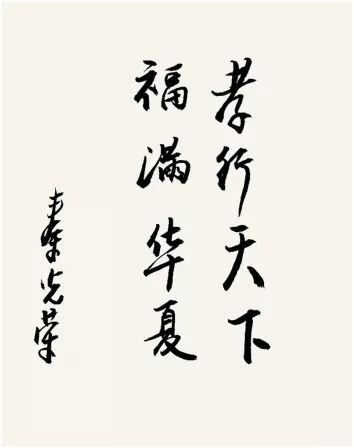 孝行天下
福满华夏
秦光荣